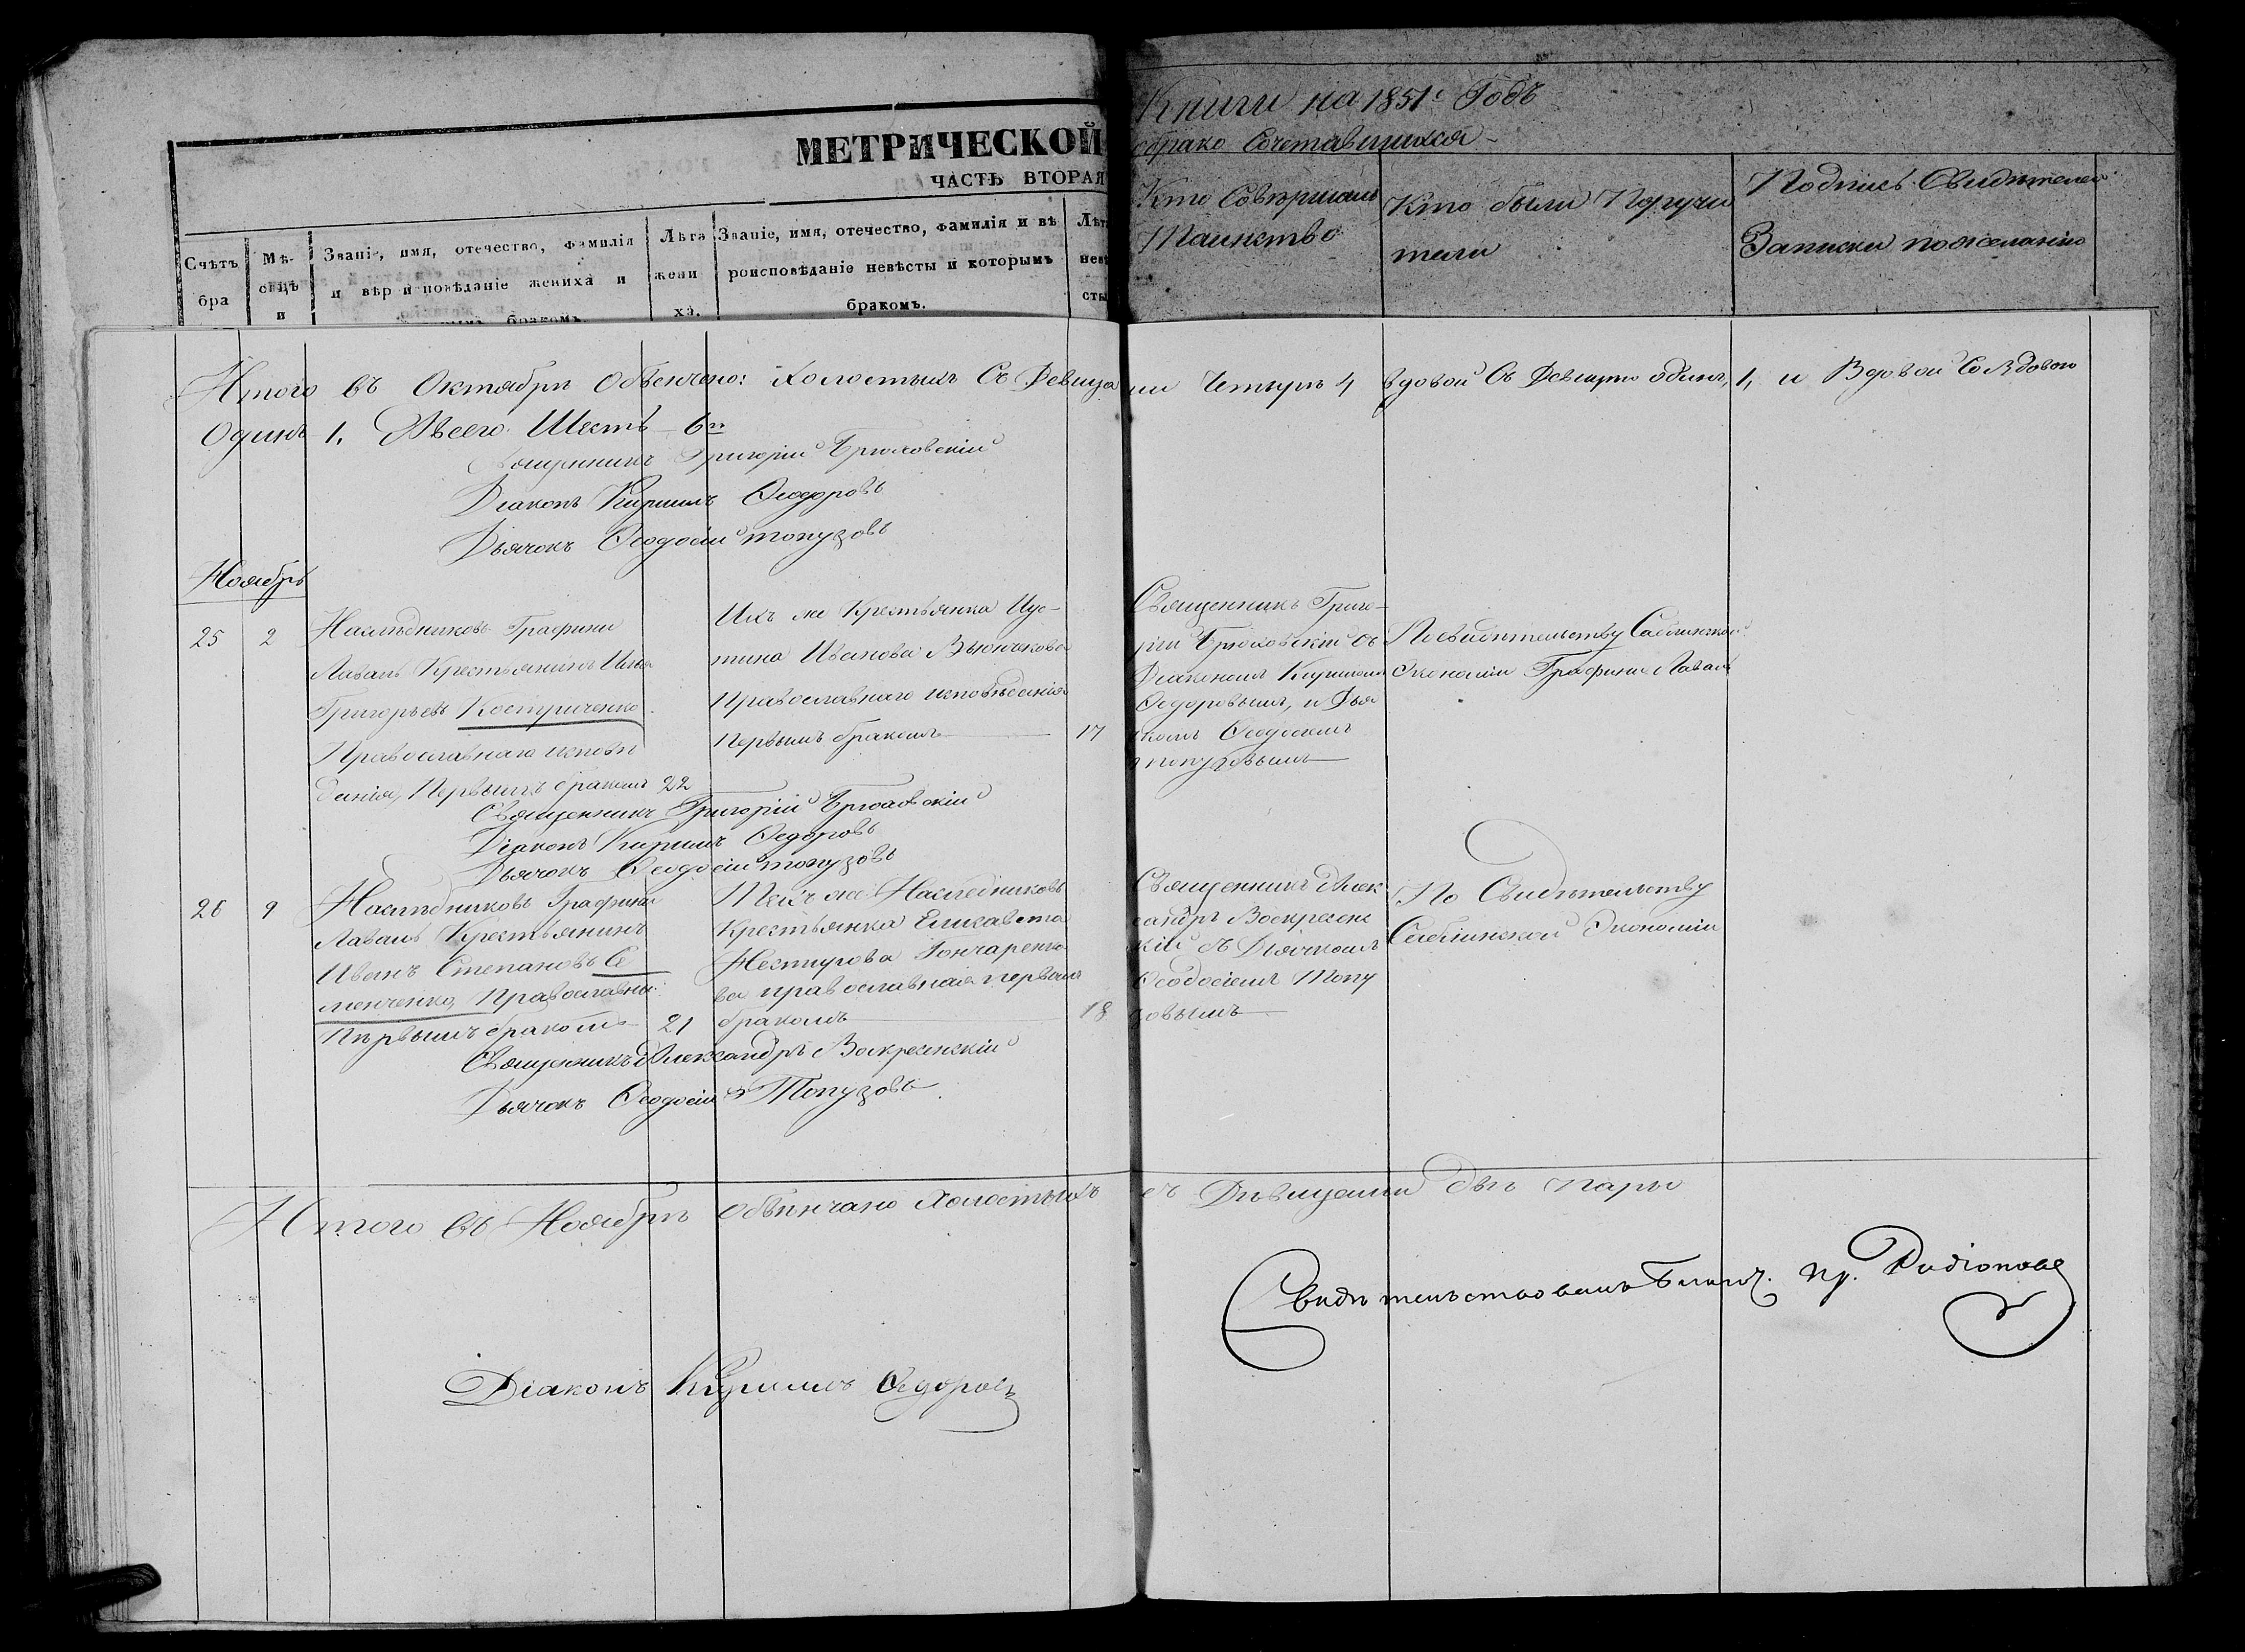 МЕТРИЧЕСКОЙ
ЧАСТЬ ВТОРАЯ
Книги на 1851й Годъ
о брако Сочетавшихся
Счѣтъ бра
Мѣ-сяцъ и
Званіе, имя, отечество, фамилія
и вѣроисповѣданіе жениха и
бракомъ.
Лѣта
жени
ха.
Званіе, имя, отечество, фамилія и вѣ
роисповѣданіе невѣсты и которымъ
бракомъ.
Лѣта
невѣ
сты
Кто Совершалъ
Таинство
Кто были Поручи
тели
Подпись Свидѣтелей
Записки по желанію
Итого въ Октябрѣ Обвенчено: Холостыхъ Съ Девицами Четыре 4 вдовой Съ Девицею одинъ, 1, и Вдовой Со Вдовою
Одинъ 1. Всего Шесть 6ть
Священникъ Григорій Брюховскій
Діаконъ Кириллъ Ѳедоровъ
Дьячокъ Ѳеодосій топузовъ
Ноябрь
25
2
Наслѣдниковъ Графини
Лаваль Крестьянинъ Илья
Григорьевъ Костриченко
Православнаго исповѣ
данія, Первымъ бракомъ 22
Ихъ же Крестьянка Иус-
тина Иванова Вьюнчкова
Православнаго исповѣданія
Первымъ бракомъ
17
Священникъ Григо-
рій Брюховскій съ
Діакономъ Кирилломъ
Ѳедоровымъ, и Дья
комъ Ѳеодосіемъ
топузовымъ
По свидѣтельству Саблинской
Экономіи Графини Лаваль
Священникъ Григорій Брюховскій
Діаконъ Кириллъ Ѳедоровъ
Дьячокъ Ѳеодосій топузовъ
26
9
Наслѣдниковъ Графини
Лаваль Крестьянинъ
Иванъ Степановъ Се
менченко, Православны
Первымъ бракомъ
21
Тѣхъ же Наслѣдниковъ
Крестьянка Елисавета
Нестирова Гончаренко
ва православная первымъ
бракомъ
18
Священникъ Алек
сандръ Воскресенс
кій съ Дьячкомъ
Ѳеодосіемъ Топу
зовымъ
По Свидѣтельству
Саблинской Экономіи
Священникъ Александръ Воскресенскій
Дьячокъ Ѳеодосій Топузовъ
Итого въ Ноябрѣ Обвѣнчано Холостыхъ съ Дѣвицами двѣ пары
Свидѣтельствовалъ Благоч. пр. Родіоновъ
Діаконъ Кириллъ Ѳедоровъ